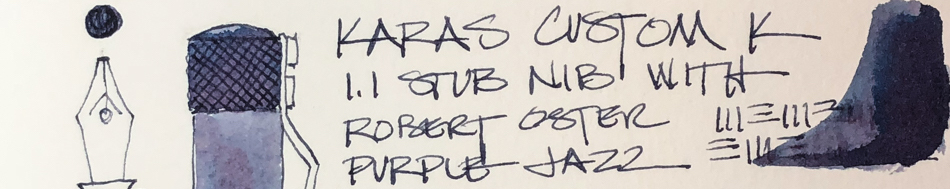 KARAS CUSTOM K
1.1 STUB NIB WITH
ROBERT OSTER
PURPLE JAZZ